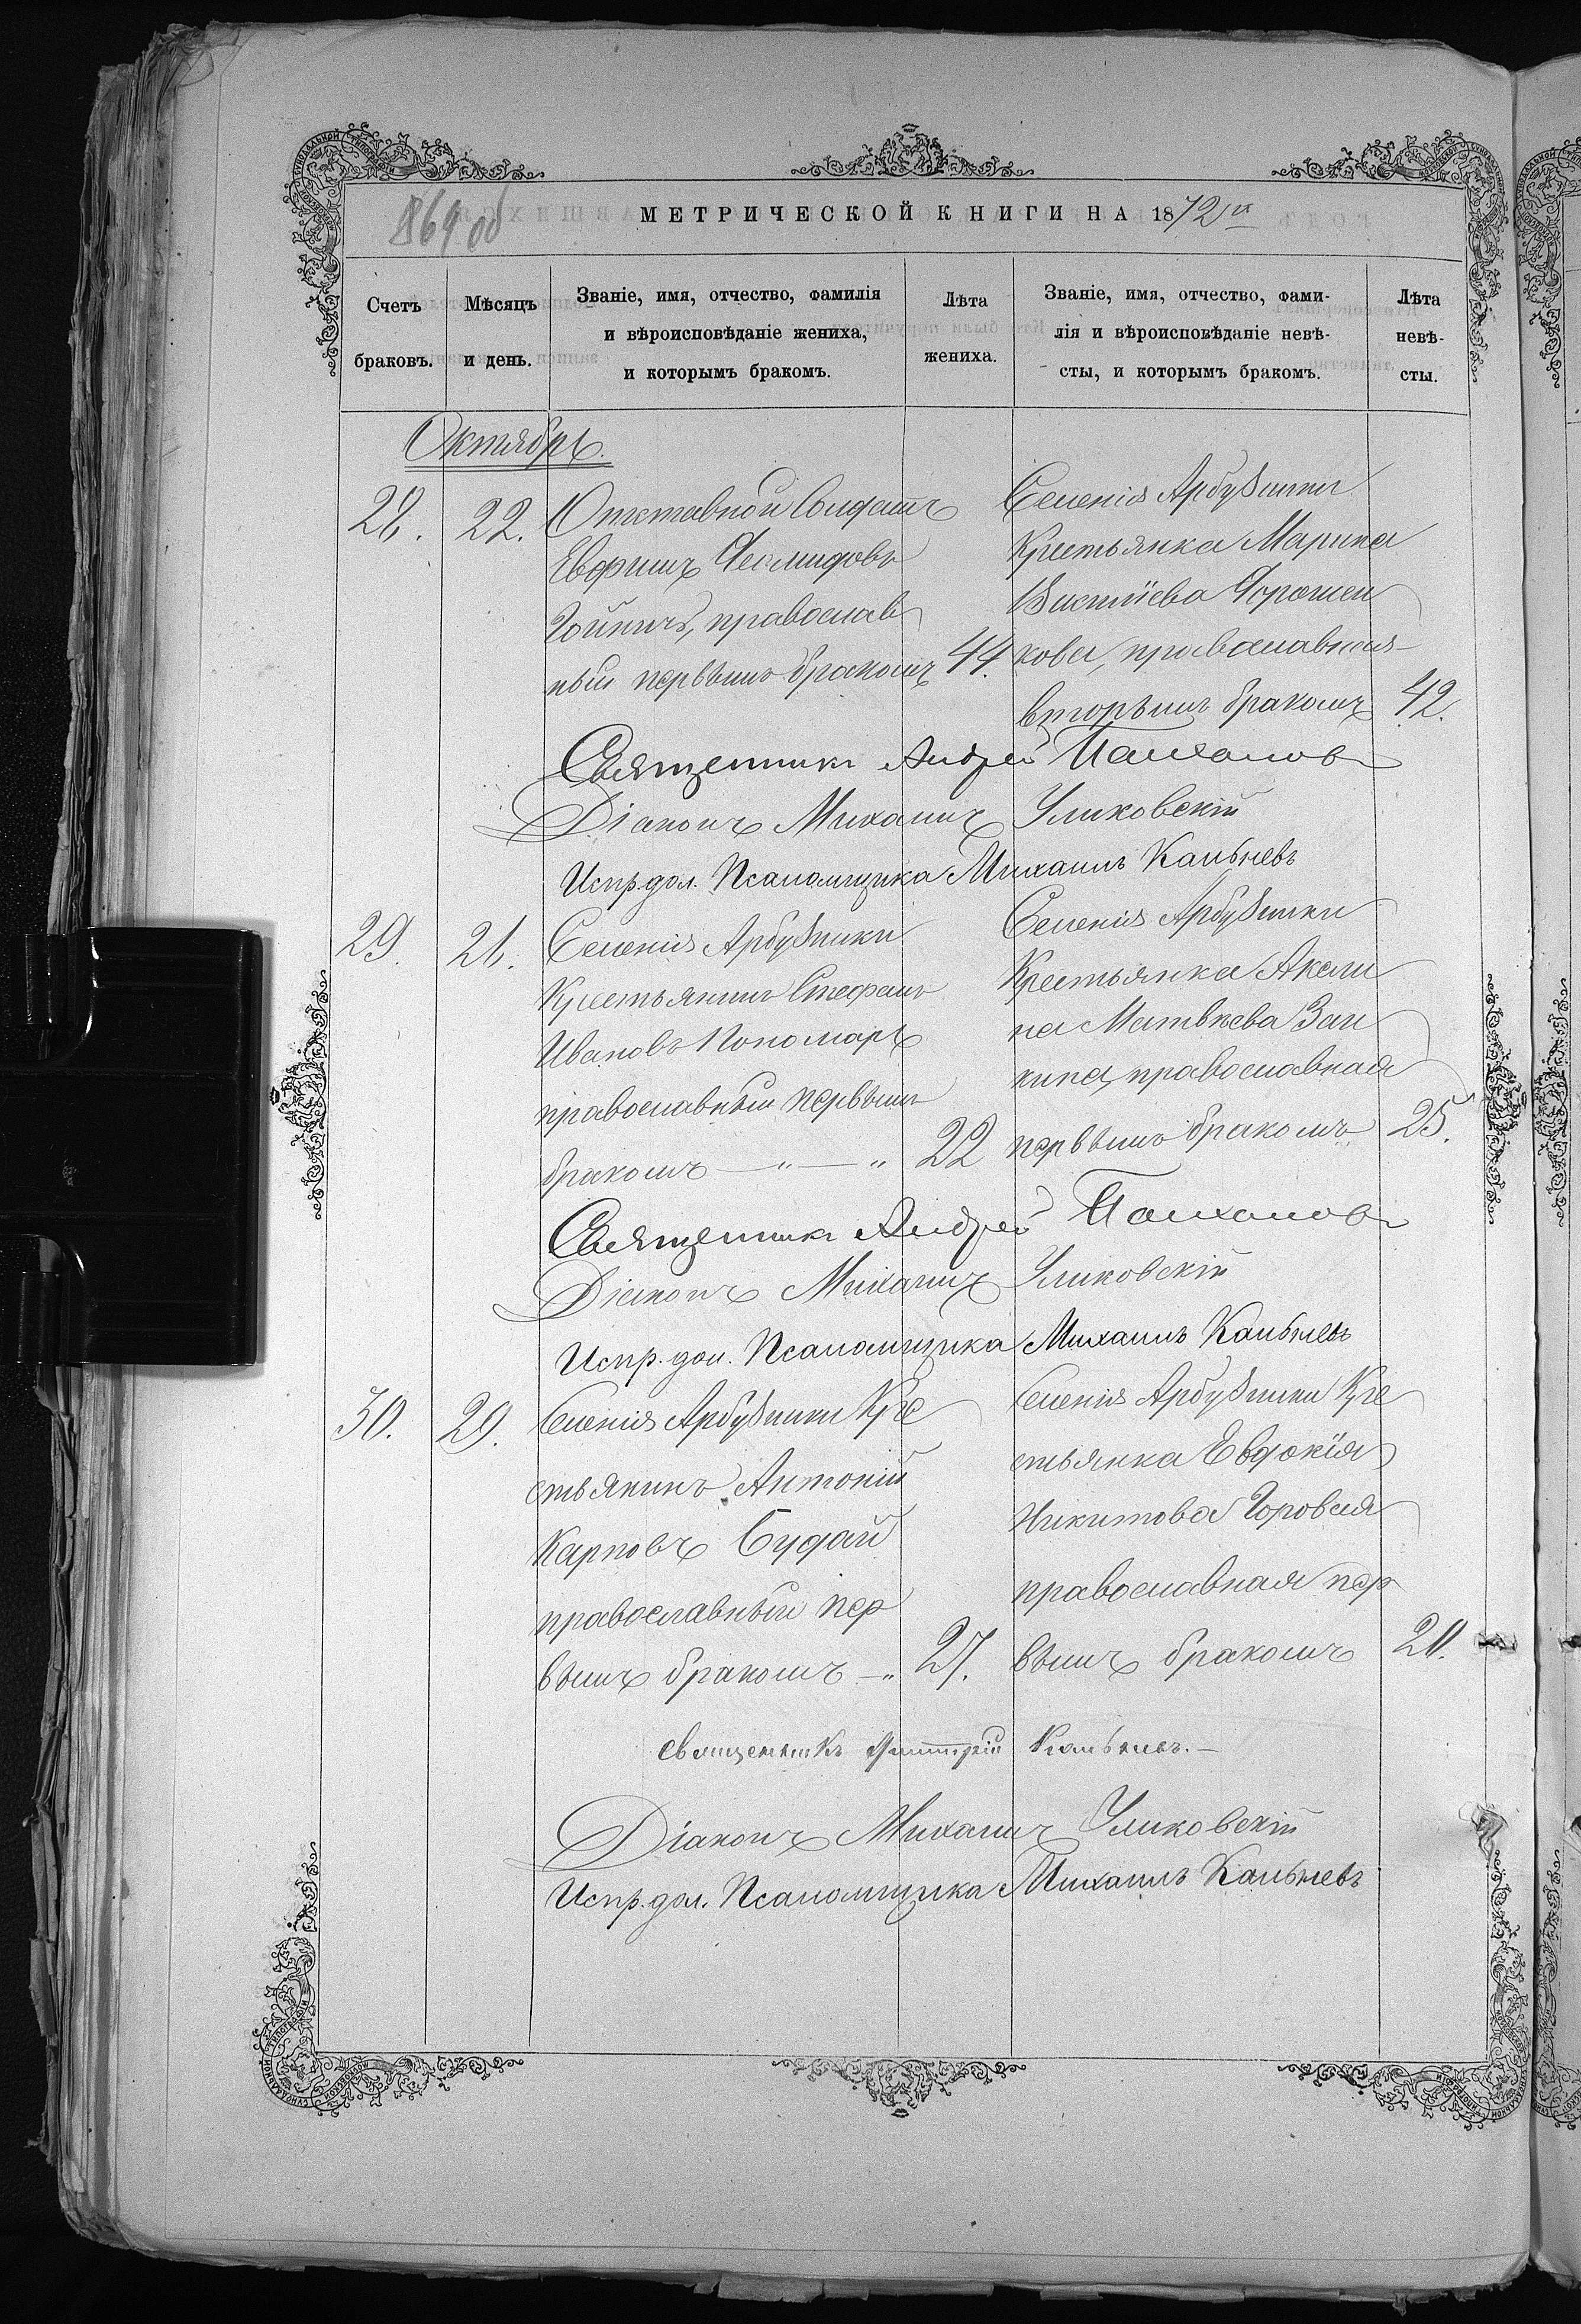 864 об
МЕТРИЧЕСКОЙ КНИГИ НА 1872й
Счетъ браковъ.
Мѣсяцъ и день.
Званіе, имя, отчество, фамилія
и вѣроисповѣданіе жениха,
и которымъ бракомъ.
Лѣта жениха.
Званіе, имя, отчество, фами-
лія и вѣроисповѣданіе невѣ-
сты, и которымъ бракомъ.
Лѣта невѣ-
сты.
Октябрь.
28. 22. Отставной Солдатъ
Евфимъ
православ
ный первымъ бракомъ 44.
Селенія Арбузинки
Крестьянка Марина
Дорошен
кова, православная
вторымъ бракомъ 42.
Священникъ Андрей
Діаконъ Михаилъ Уликовскій
Испр. дол. Псаломщика Михаилъ Кальневъ
29. Селенія Арбузинки
Крестьянинъ Стефанъ
Ивановъ Пономарь
православный первымъ
бракомъ — " — " 22
Селенія Арбузинки
Крестьянка Акили
на Матвѣева Заи
кина, православная
первымъ бракомъ 25.
Священникъ Андрей
Діаконъ Михаилъ Уликовскій
Испр. дол. Псаломщика Михаилъ Кальневъ
30. 29. Селенія Арбузинки Кре
стьянинъ Антоній
Карповъ Будай
православный пер
вымъ бракомъ — " 27.
Селенія Арбузинки Кре
стьянка Евдокія
Никитова
православная пер
вымъ бракомъ 20.
священникъ Димитрій Кальневъ. —
Діаконъ Михаилъ Уликовскій
Испр. дол. Псаломщика Михаилъ Кальневъ